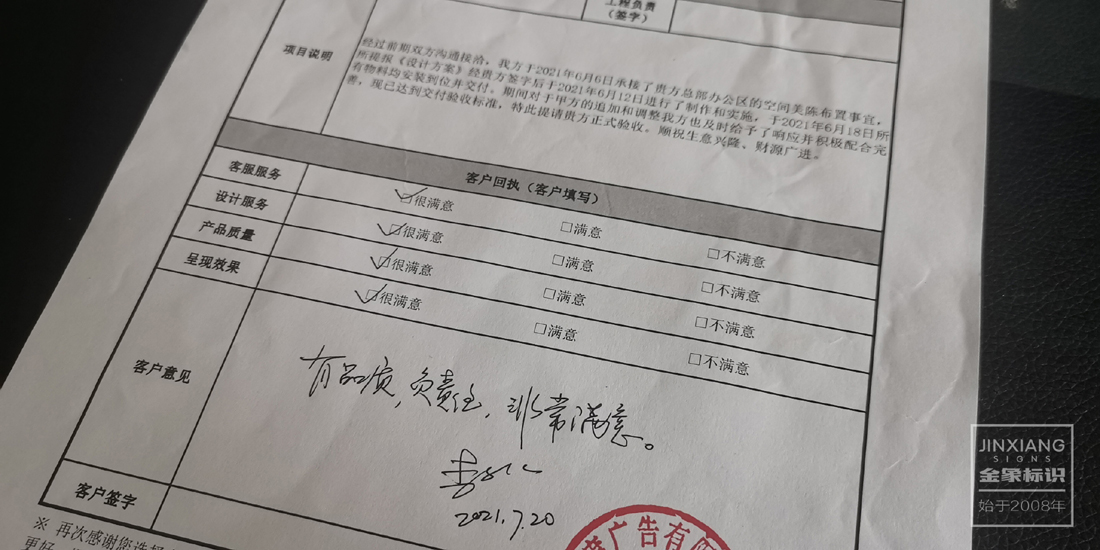 工程负责
（签字）
项目说明
经过前期双方沟通接洽，我方于2021年6月6日承接了贵方总部办公区的空间美陈布置事宜，
所提报《设计方案》经贵方签字后于2021年6月12日进行了制作和实施，于2021年6月18日所
有物料均安装到位并交付。期间对于甲方的追加和调整我方也及时给予了响应并积极配合完
善，现已达到交付验收标准，特此提请贵方正式验收。顺祝生意兴隆、财源广进。
客户回执（客户填写）
客服服务 ☑很满意 □满意 □不满意
设计服务 ☑很满意 □满意 □不满意
产品质量 ☑很满意 □满意 □不满意
呈现效果 ☑很满意 □满意 □不满意
客户意见
有品质，负责任，非常满意。
2021.7.20
客户签字
广告有限
※ 再次感谢您选择
更好
JINXIANG
SIGNS
金象标识
始于2008年